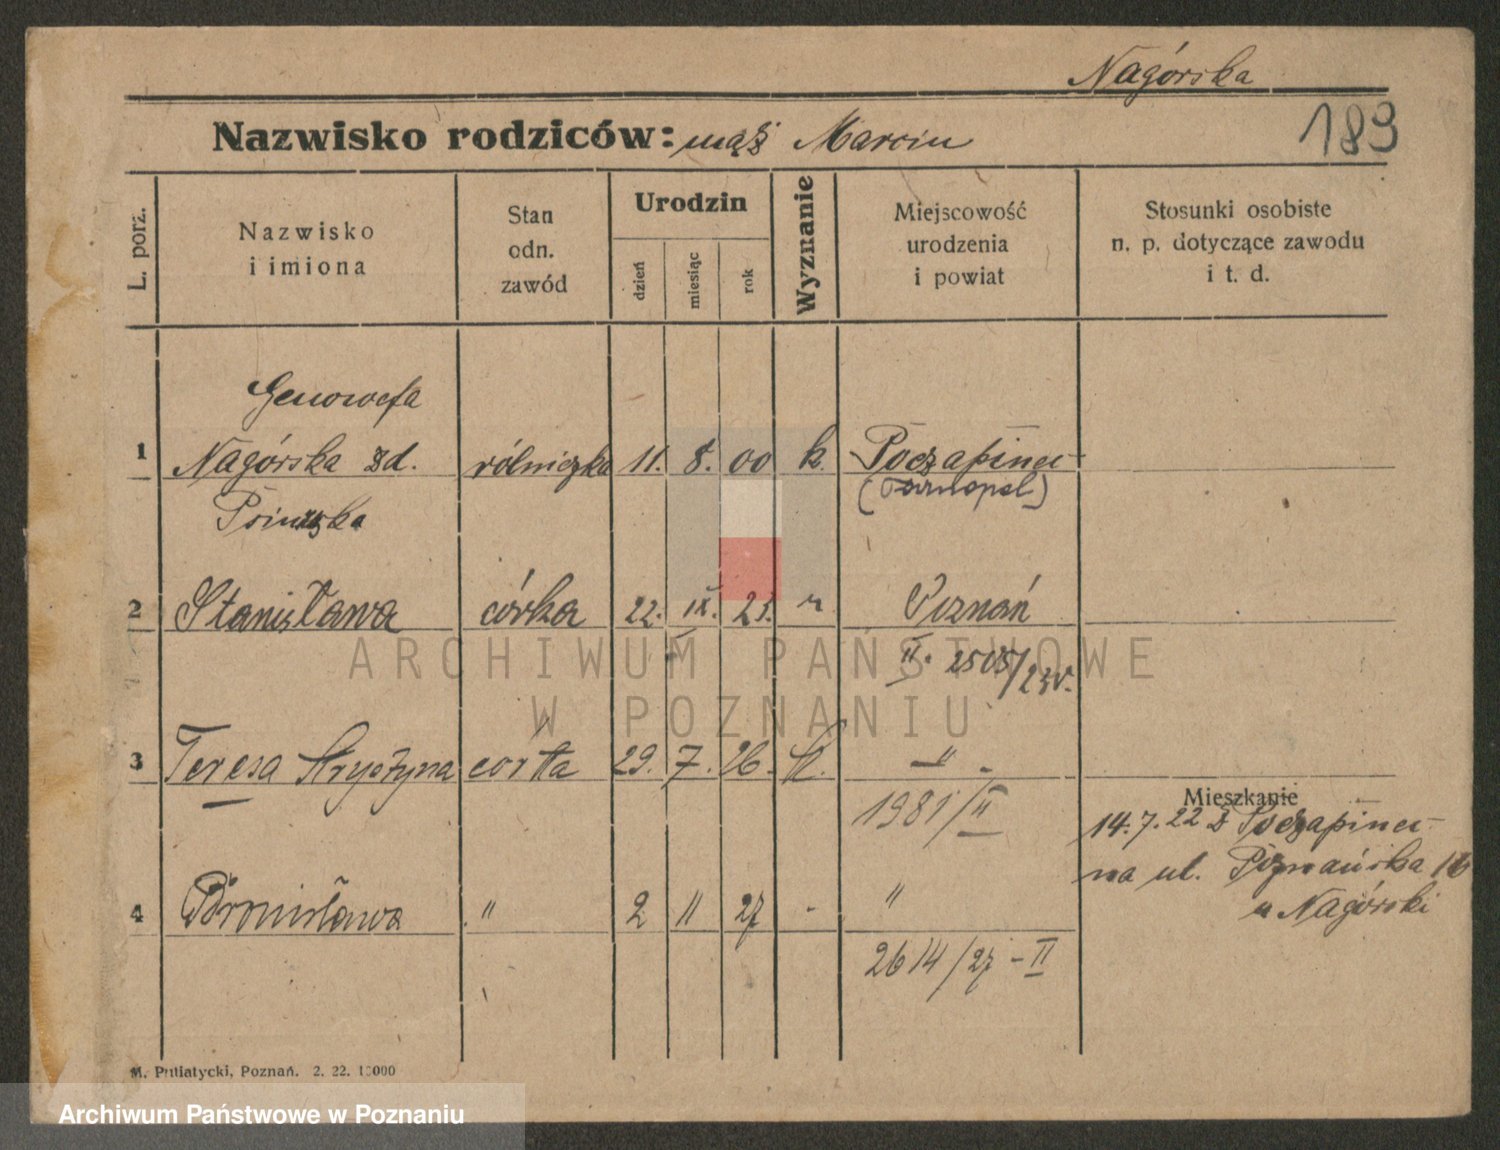 Nagórska
Nazwisko rodziców: mąż Marcin
189
L. porz.
Nazwisko
i imiona
Stan
odn.
zawód
Urodzin
dzień
miesiąc
rok
Wyznanie
Miejscowość
urodzenia
i powiat
Stosunki osobiste
n. p. dotyczące zawodu
i t. d.
Genowefa
1 Nagórska zd. rólniczka 11. 8. 00 k. Poczapińce
(Tarnopol)
2 Stanisława córka 22. IX. 23. r Poznań
II. 2505/23r.
3 Teresa Krystyna córka 29. 7. 26. k. "
1981/II
Mieszkanie
14.7.22 z Poczapińce
na ul. Poznańska 16
u Nagórski
4 Bronisława " 2 11 27 - "
2614/27-II
M. Putiatycki, Poznań. 2. 22. 10000
ARCHIWUM PAŃSTWOWE
W POZNANIU
Archiwum Państwowe w Poznaniu